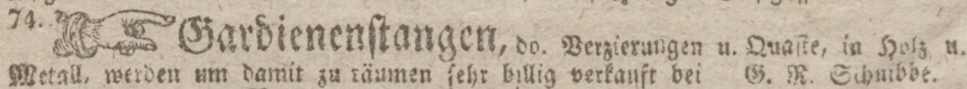 74. Gardienenstangen, do. Verzierungen u. Quaste, in Holz u.
Metall, werden um damit zu räumen sehr billig verkauft bei G. R. Schnibbe.